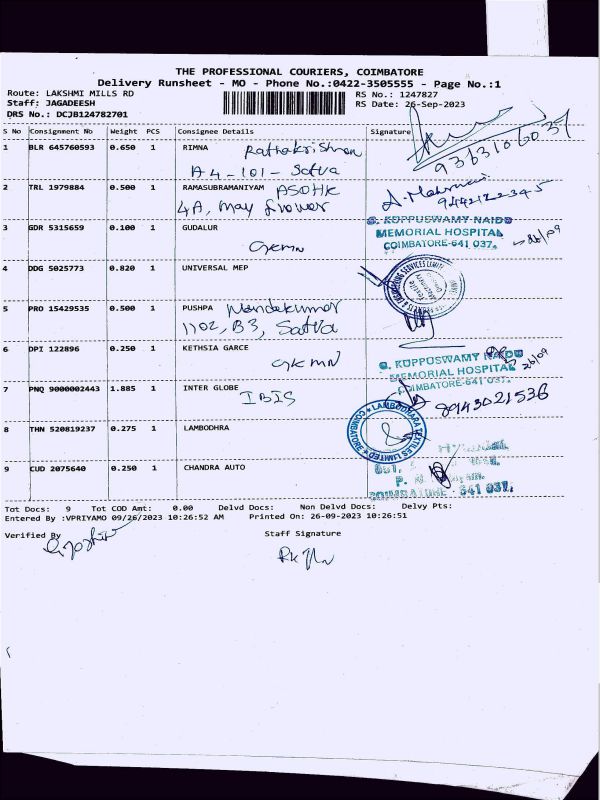 THE PROFESSIONAL COURIERS, COIMBATORE
Delivery Runsheet - MO - Phone No.:0422-3505555 - Page No.:1
Route: LAKSHMI MILLS RD RS No.: 1247827
Staff: JAGADEESH RS Date: 26-Sep-2023
DRS No.: DCJB124782701
S No Consignment No Weight PCS Consignee Details Signature
1 BLR 645760593 0.650 1 RIMNA Rathakrishnan
A4-101-Satva
2 TRL 1979884 0.500 1 RAMASUBRAMANIYAM ASOHK
4A, May flower
3 GDR 5315659 0.100 1 GUDALUR G. KUPPUSWAMY NAIDU
MEMORIAL HOSPITAL
GKMN COIMBATORE-641 037. 26/09
4 DDG 5025773 0.820 1 UNIVERSAL MEP
5 PRO 15429535 0.500 1 PUSHPA Nandakumar
1102, B3, Satva
6 DPI 122896 0.250 1 KETHSIA GARCE
GKMN G. KUPPUSWAMY NAIDU 26/09
MEMORIAL HOSPITAL
COIMBATORE-641 037.
7 PNQ 9000002443 1.885 1 INTER GLOBE
IBIS 8943021536
LAMBODHARA TEXTILES LIMITED COIMBATORE
8 THN 520819237 0.275 1 LAMBODHRA
9 CUD 2075640 0.250 1 CHANDRA AUTO
COIMBATORE - 641 037.
Tot Docs: 9 Tot COD Amt: 0.00 Delvd Docs: Non Delvd Docs: Delvy Pts:
Entered By :VPRIYAMO 09/26/2023 10:26:52 AM Printed On: 26-09-2023 10:26:51
Verified By Staff Signature